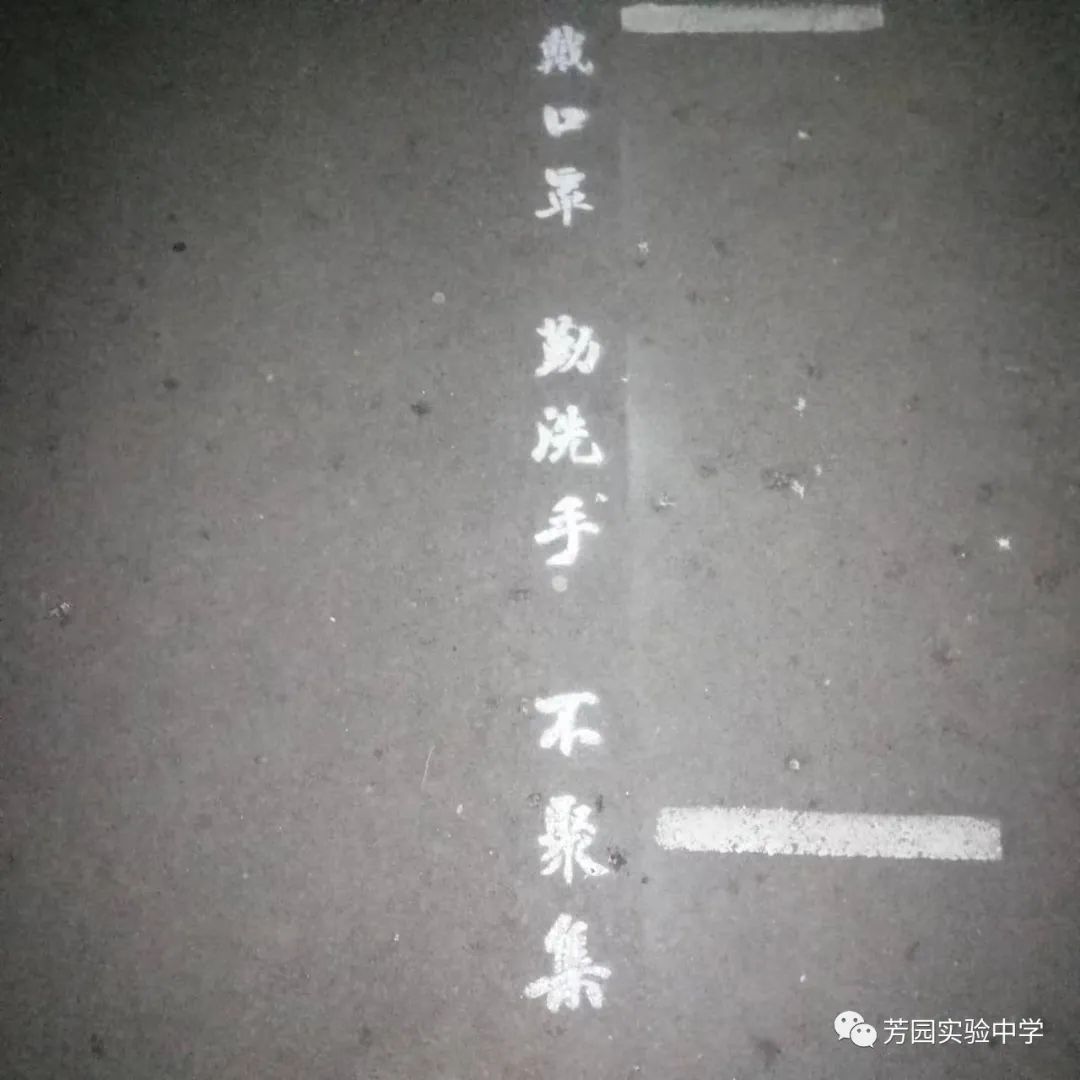 戴口罩 勤洗手 不聚集
芳园实验中学